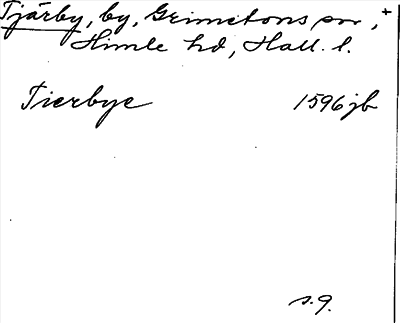 Tjärby, by, Grimetons sn, +
Himle hd, Hall. l.
Tierbye 1596 jb
s. 9.